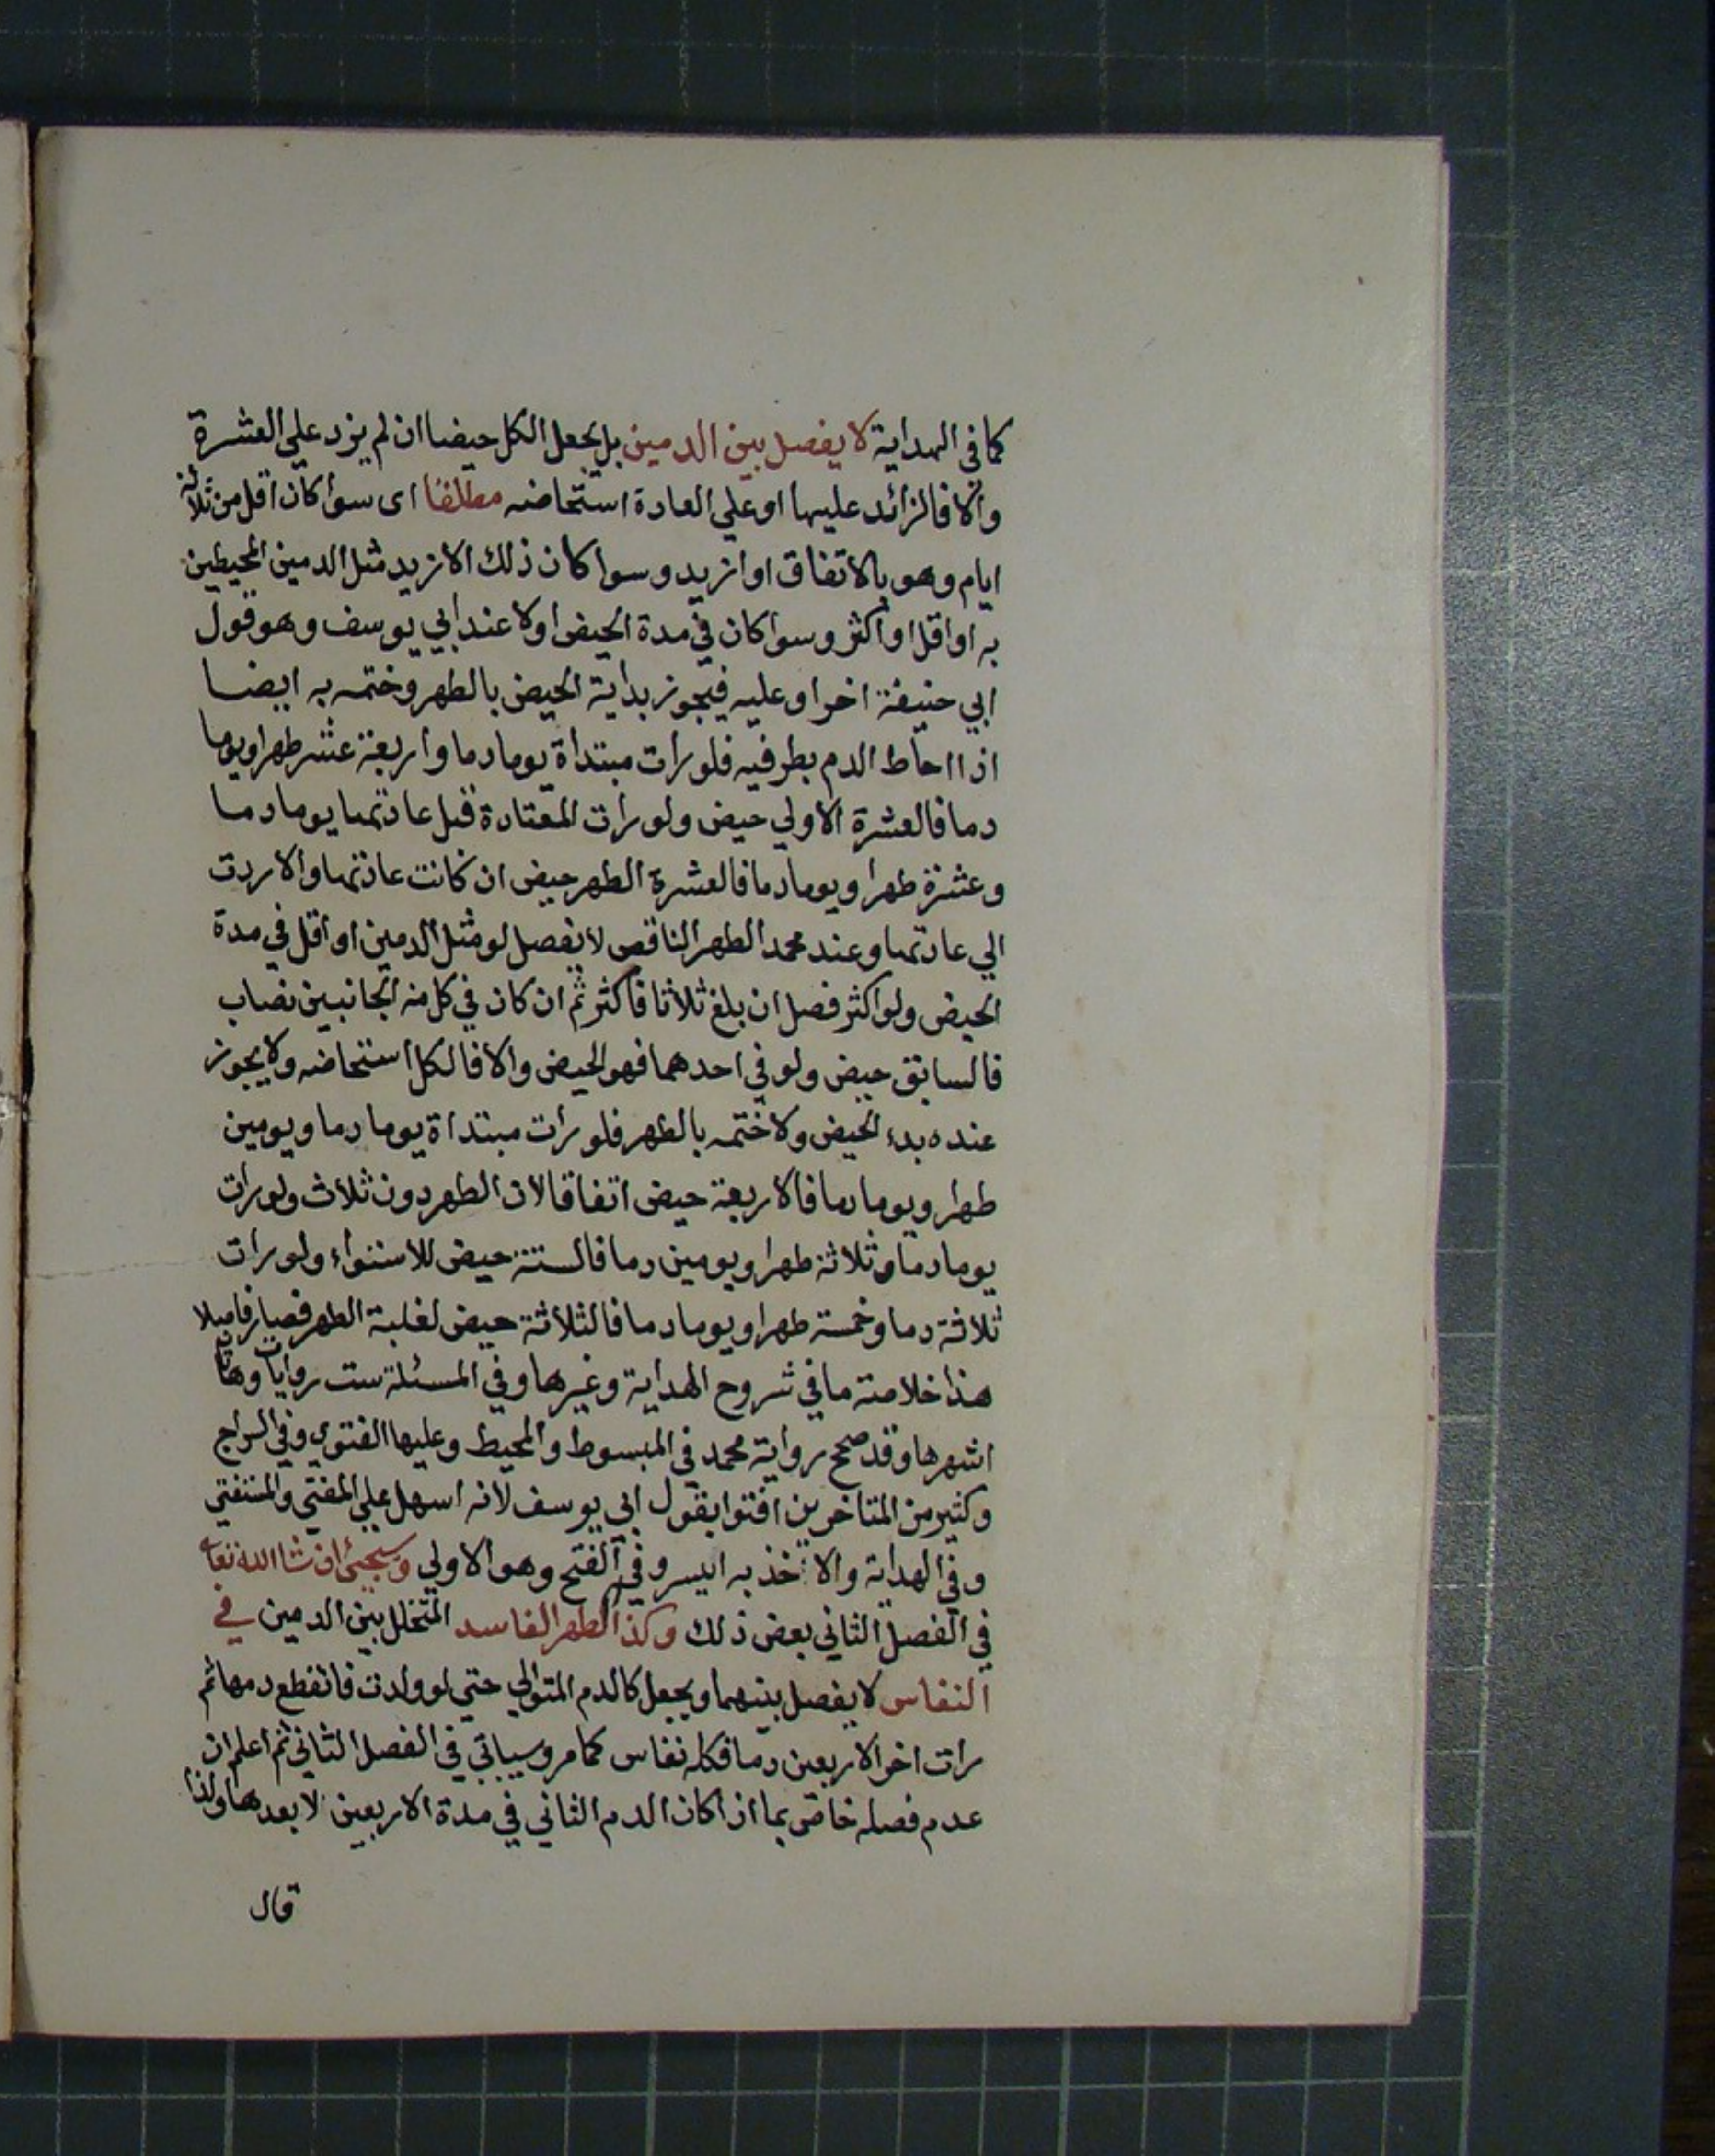 كما في الهداية لا يفصل بين الدمين بل يجعل الكل حيضا ان لم يزد علي العشرة
والا فالزائد عليها او علي العادة استحاضه مطلقا اي سوا كان اقل من ثلاثة
ايام وهو بالاتفاق او ازيد وسوا كان ذلك الازيد مثل الدمين المحيطين
به او اقل او اكثر وسوا كان في مدة الحيض اولا عند ابي يوسف وهو قول
ابي حنيفة اخرا وعليه فيجوز بداية الحيض بالطهر وختمه به ايضا
اذا احاط الدم بطرفيه فلو رات مبتداة يوما دما واربعة عشر طهرا ويوما
دما فالعشرة الاولي حيض ولو رات المعتادة قبل عادتها يوما دما
وعشرة طهرا ويوما دما فالعشرة الطهر حيض ان كانت عادتها والا ردت
الي عادتها وعند محمد الطهر الناقص لا يفصل لو مثل الدمين او اقل في مدة
الحيض ولو اكثر فصل ان بلغ ثلاثا فاكثر ثم ان كان في كل منه الجانبين نصاب
فالسابق حيض ولو في احدهما فهو الحيض والا فالكل استحاضه ولا يجوز
عنده بدء الحيض ولا ختمه بالطهر فلو رات مبتداة يوما دما ويومين
طهرا ويوما دما فالاربعة حيض اتفاقا لان الطهر دون ثلاث ولو رات
يوما دما وثلاثة طهرا ويومين دما فالستة حيض للاستواء ولو رات
ثلاثة دما وخمسة طهرا ويوما دما فالثلاثة حيض لغلبة الطهر فصار فاصلا
هذا خلاصة ما في شروح الهداية وغيرها وفي المسئلة ست روايات وهاتان
اشهرها وقد صحح رواية محمد في المبسوط والمحيط وعليها الفتوي وفي السراج
وكثير من المتاخرين افتوا بقول ابي يوسف لانه اسهل علي المفتي والمستفتي
وفي الهداية والاخذ به ايسر وفي الفتح وهو الاولي وسيجئ ان شا الله تعا
في الفصل الثاني بعض ذلك وكذا الطهر الفاسد المتخلل بين الدمين في
النفاس لا يفصل بينهما ويجعل كالدم المتوالي حتي لو ولدت فانقطع دمها ثم
رات اخر الاربعين دما فكله نفاس كما مر وسياتي في الفصل الثاني ثم اعلم ان
عدم فصله خاص بما اذا كان الدم الثاني في مدة الاربعين لا بعدها ولذا
قال